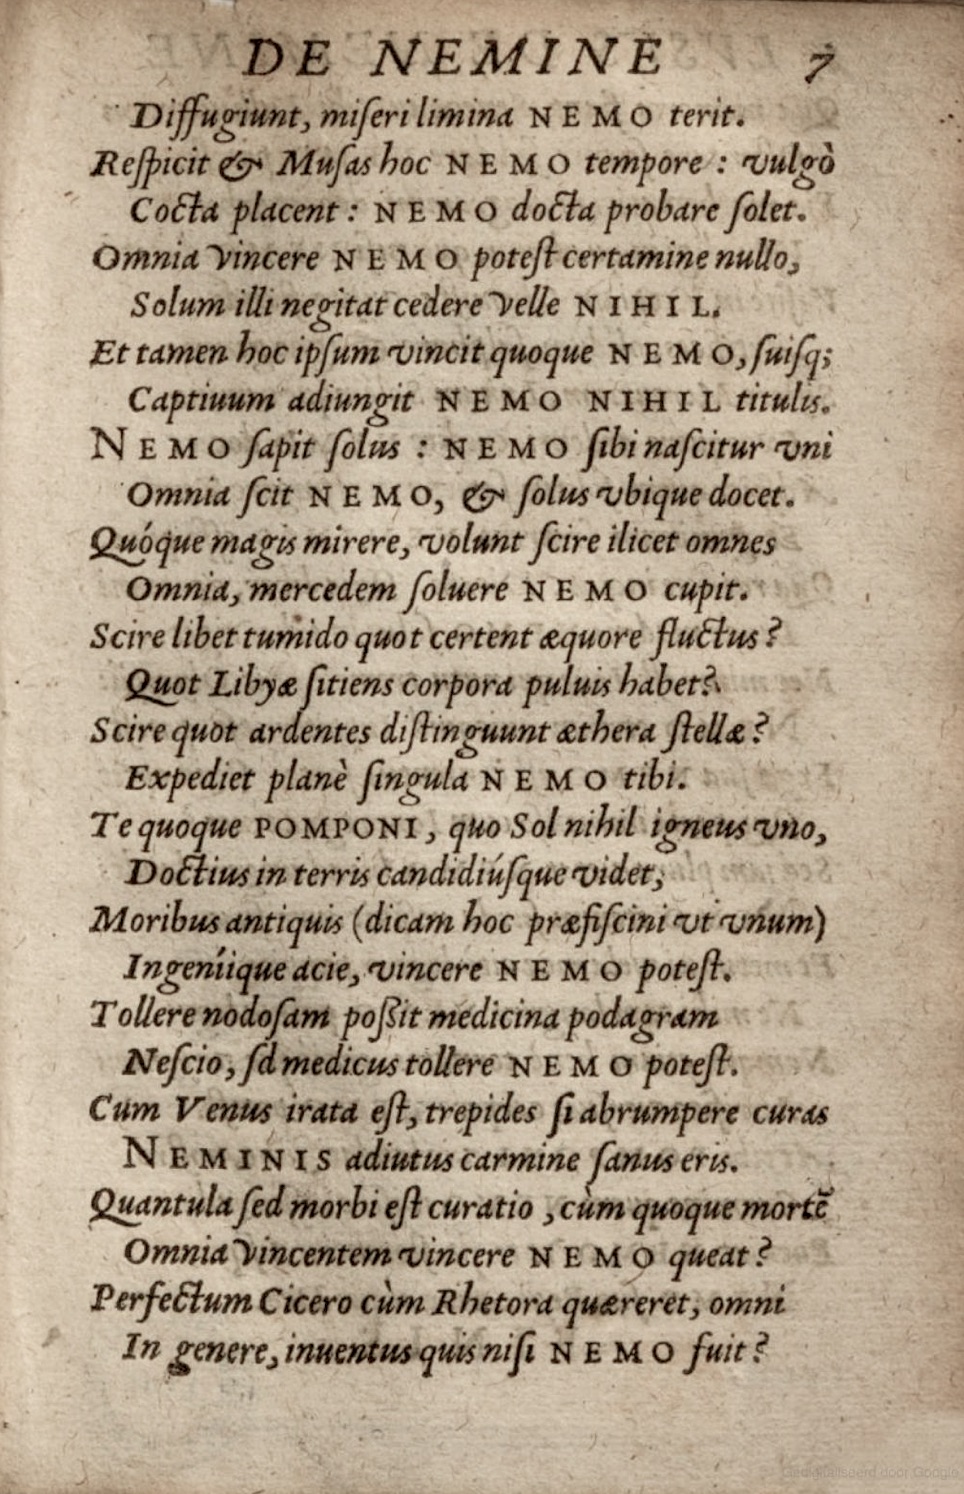 DE NEMINE 7
Diffugiunt, miſeri limina NEMO terit.
Reſpicit & Muſas hoc NEMO tempore : vulgò
Cocta placent : NEMO docta probare ſolet.
Omnia vincere NEMO poteſt certamine nullo,
Solum illi negitat cedere velle NIHIL.
Et tamen hoc ipſum vincit quoque NEMO, ſuiſq;
Captiuum adiungit NEMO NIHIL titulis.
NEMO ſapit ſolus : NEMO ſibi naſcitur vni
Omnia ſcit NEMO, & ſolus vbique docet.
Quóque magis mirere, volunt ſcire ilicet omnes
Omnia, mercedem ſoluere NEMO cupit.
Scire libet tumido quot certent æquore fluctus ?
Quot Libyæ ſitiens corpora puluis habet?
Scire quot ardentes diſtinguunt æthera ſtellæ ?
Expediet planè ſingula NEMO tibi.
Te quoque POMPONI, quo Sol nihil igneus vno,
Doctius in terris candidiúſque videt,
Moribus antiquis (dicam hoc præfiſcini vt vnum)
Ingeníique acie, vincere NEMO poteſt.
Tollere nodoſam poſſit medicina podagram
Neſcio, ſd medicus tollere NEMO poteſt.
Cum Venus irata eſt, trepides ſi abrumpere curas
NEMINIS adiutus carmine ſanus eris.
Quantula ſed morbi eſt curatio , cùm quoque mortē
Omnia vincentem vincere NEMO queat ?
Perfectum Cicero cùm Rhetora quæreret, omni
In genere, inuentus quis niſi NEMO fuit ?
Gedigitaliseerd door Google